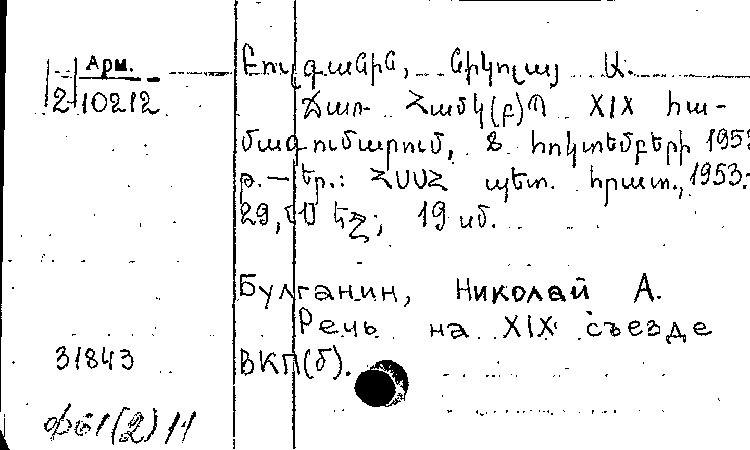 Арм.
2 10212
Բուլգանին, Նիկոլայ Ա.
Ճառ ՀամԿ(բ)Պ XIX հա-
մագումարում, 8 հոկտեմբերի 195
թ. — Եր.: ՀՍՍՀ պետ. հրատ., 1953.-
29, եջ; 19 սմ.
Булганин, Николай А.
Речь на XIX съезде
31843 ВКП(б).